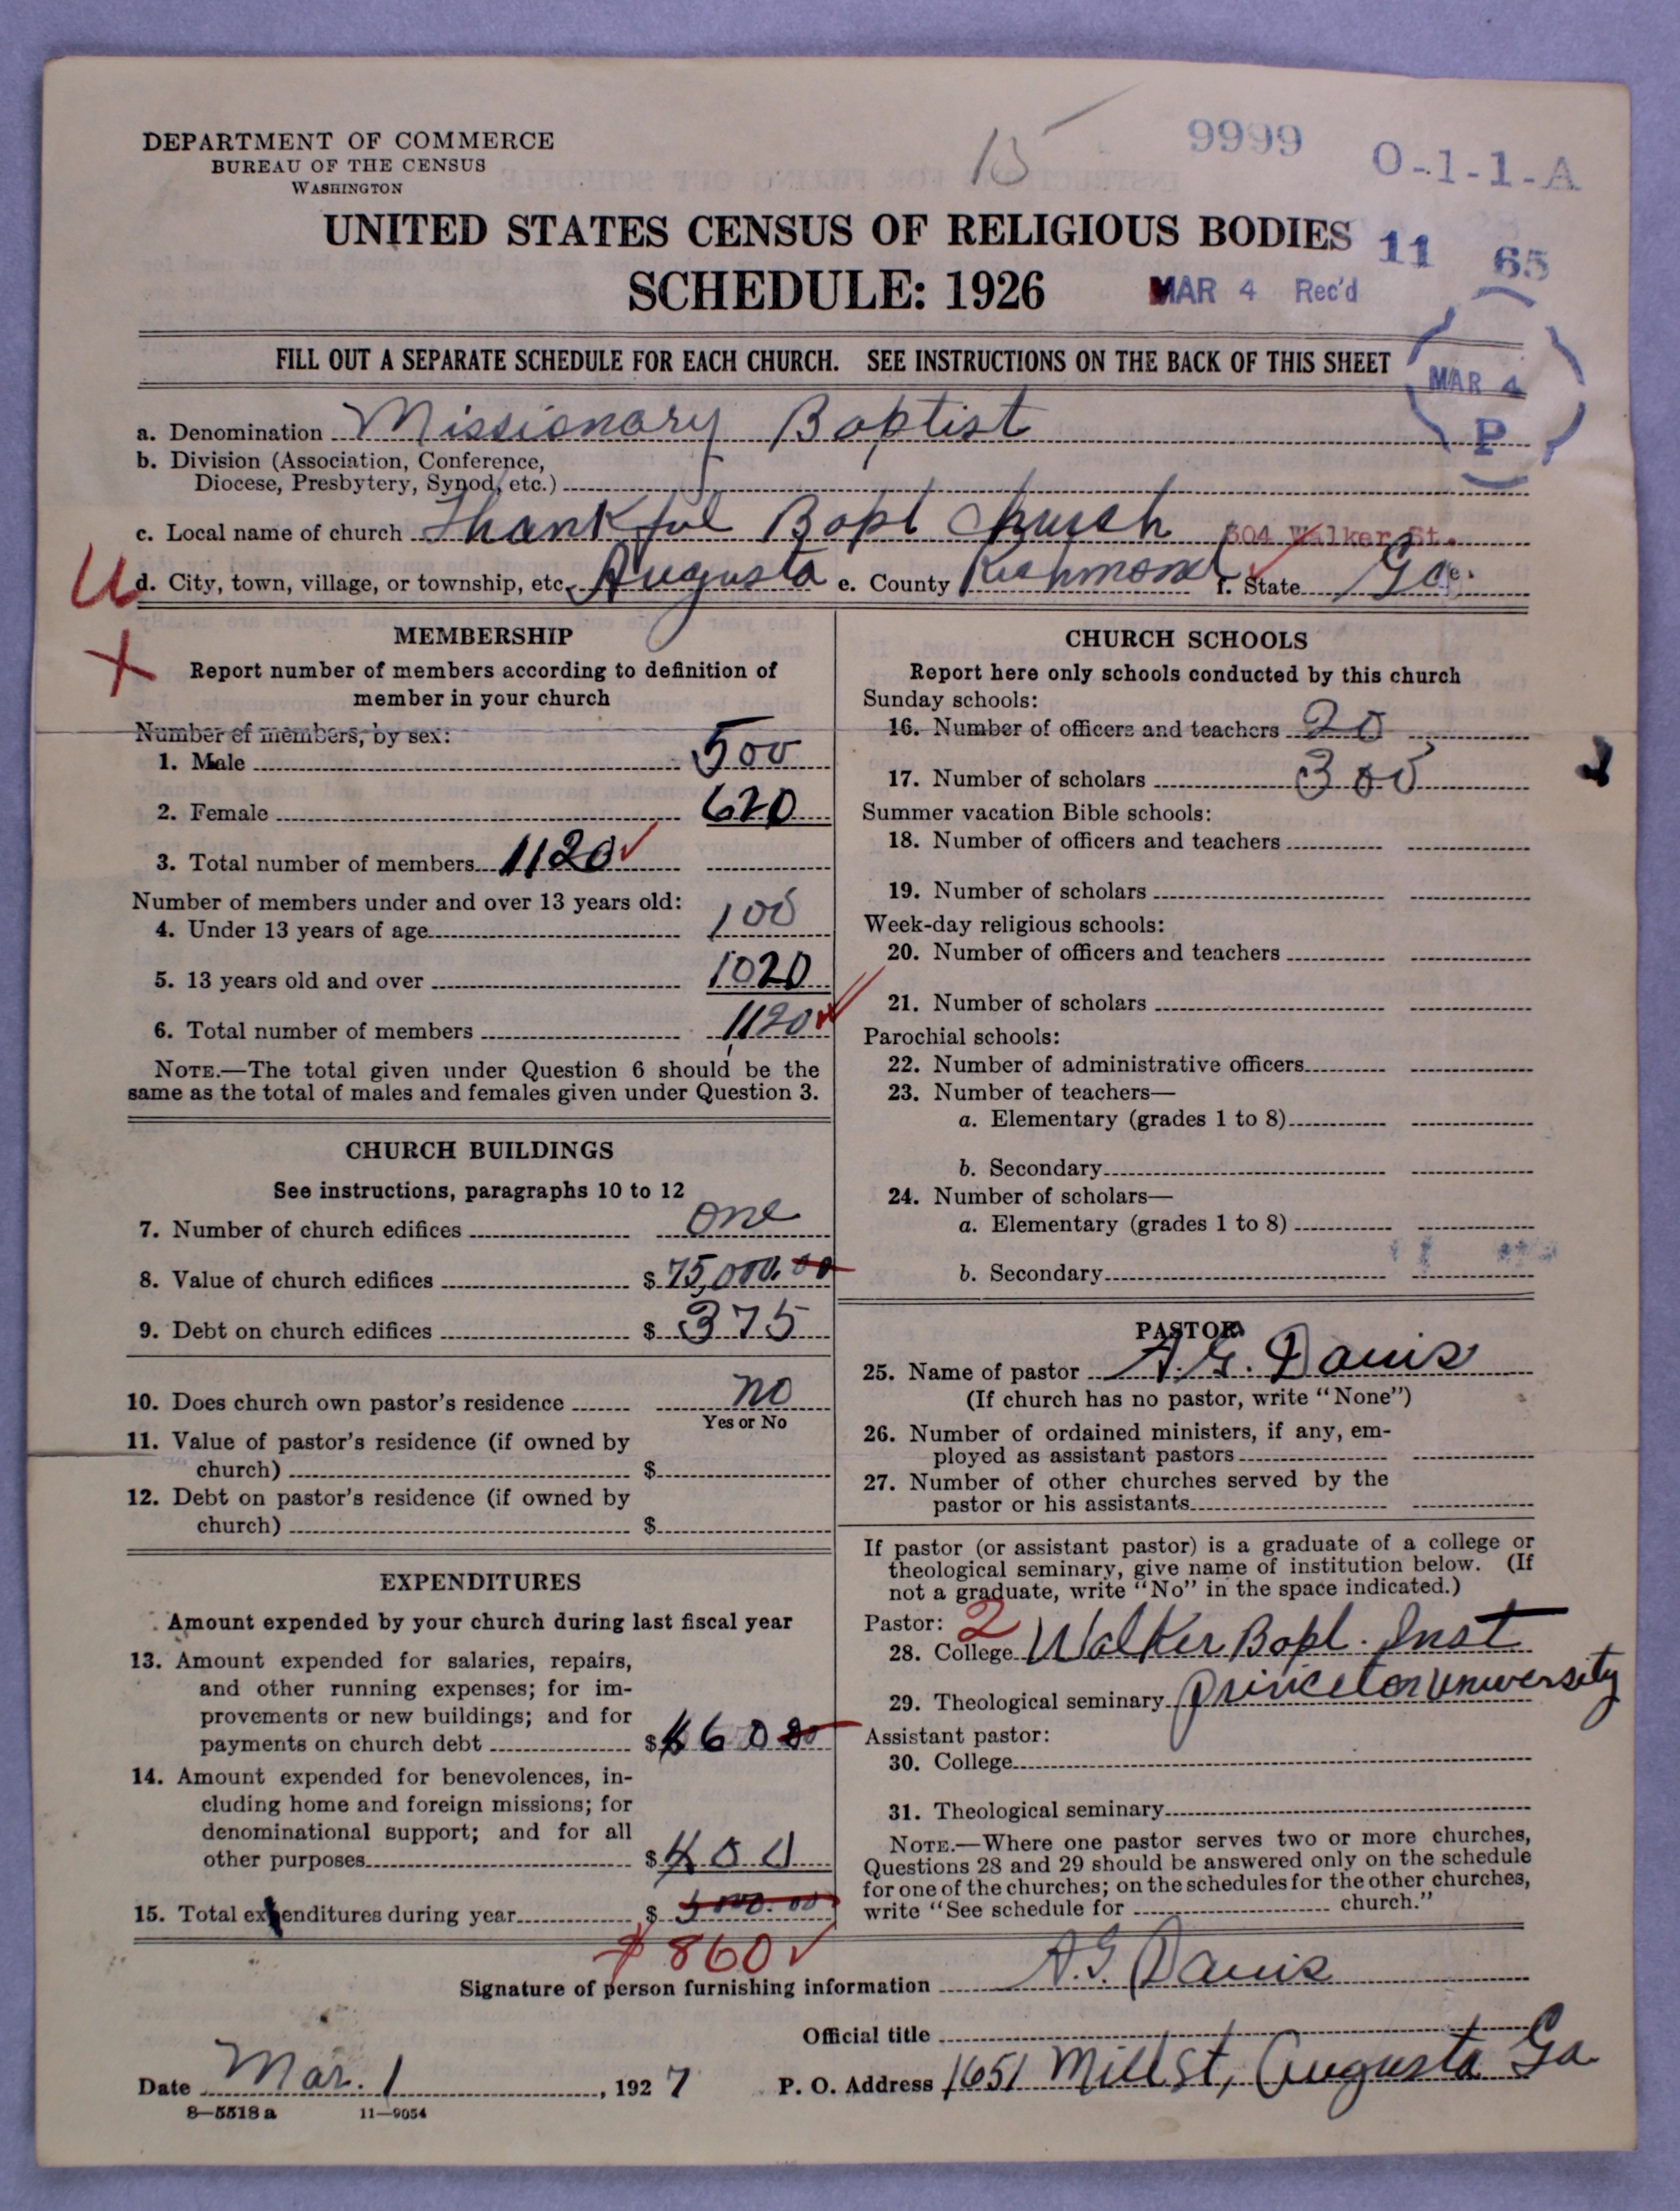 DEPARTMENT OF COMMERCE
BUREAU OF THE CENSUS
WASHINGTON
15
9999
O-1-1-A
UNITED STATES CENSUS OF RELIGIOUS BODIES
11 65
SCHEDULE: 1926
MAR 4 Rec'd
FILL OUT A SEPARATE SCHEDULE FOR EACH CHURCH. SEE INSTRUCTIONS ON THE BACK OF THIS SHEET
MAR 4
P
a. Denomination Missionary Baptist
b. Division (Association, Conference,
Diocese, Presbytery, Synod, etc.)
c. Local name of church Thankful Bapt Church 304 Walker St.
U
d. City, town, village, or township, etc. Augusta e. County Richmond f. State Ga.
X
MEMBERSHIP
Report number of members according to definition of
member in your church
Number of members, by sex:
1. Male 500
2. Female 620
3. Total number of members 1120
Number of members under and over 13 years old:
4. Under 13 years of age 100
5. 13 years old and over 1020
6. Total number of members 1120
NOTE.—The total given under Question 6 should be the
same as the total of males and females given under Question 3.
CHURCH BUILDINGS
See instructions, paragraphs 10 to 12
7. Number of church edifices one
8. Value of church edifices $ 75,000.00
9. Debt on church edifices $ 375
10. Does church own pastor's residence no
Yes or No
11. Value of pastor's residence (if owned by
church) $
12. Debt on pastor's residence (if owned by
church) $
EXPENDITURES
Amount expended by your church during last fiscal year
13. Amount expended for salaries, repairs,
and other running expenses; for im-
provements or new buildings; and for
payments on church debt $
14. Amount expended for benevolences, in-
cluding home and foreign missions; for
denominational support; and for all
other purposes $ 400
15. Total expenditures during year $
$860
CHURCH SCHOOLS
Report here only schools conducted by this church
Sunday schools:
16. Number of officers and teachers 20
17. Number of scholars 300
Summer vacation Bible schools:
18. Number of officers and teachers
19. Number of scholars
Week-day religious schools:
20. Number of officers and teachers
21. Number of scholars
Parochial schools:
22. Number of administrative officers
23. Number of teachers—
a. Elementary (grades 1 to 8)
b. Secondary
24. Number of scholars—
a. Elementary (grades 1 to 8)
b. Secondary
PASTOR
25. Name of pastor A. G. Davis
(If church has no pastor, write "None")
26. Number of ordained ministers, if any, em-
ployed as assistant pastors
27. Number of other churches served by the
pastor or his assistants
If pastor (or assistant pastor) is a graduate of a college or
theological seminary, give name of institution below. (If
not a graduate, write "No" in the space indicated.)
Pastor: 2
28. College Walker Bapt. Inst
29. Theological seminary Princeton University
Assistant pastor:
30. College
31. Theological seminary
NOTE.—Where one pastor serves two or more churches,
Questions 28 and 29 should be answered only on the schedule
for one of the churches; on the schedules for the other churches,
write "See schedule for church."
Signature of person furnishing information A.G. Davis
Official title
Date Mar. 1, 1927 P. O. Address 1651 Mill St, Augusta Ga
8—5518 a 11—9054